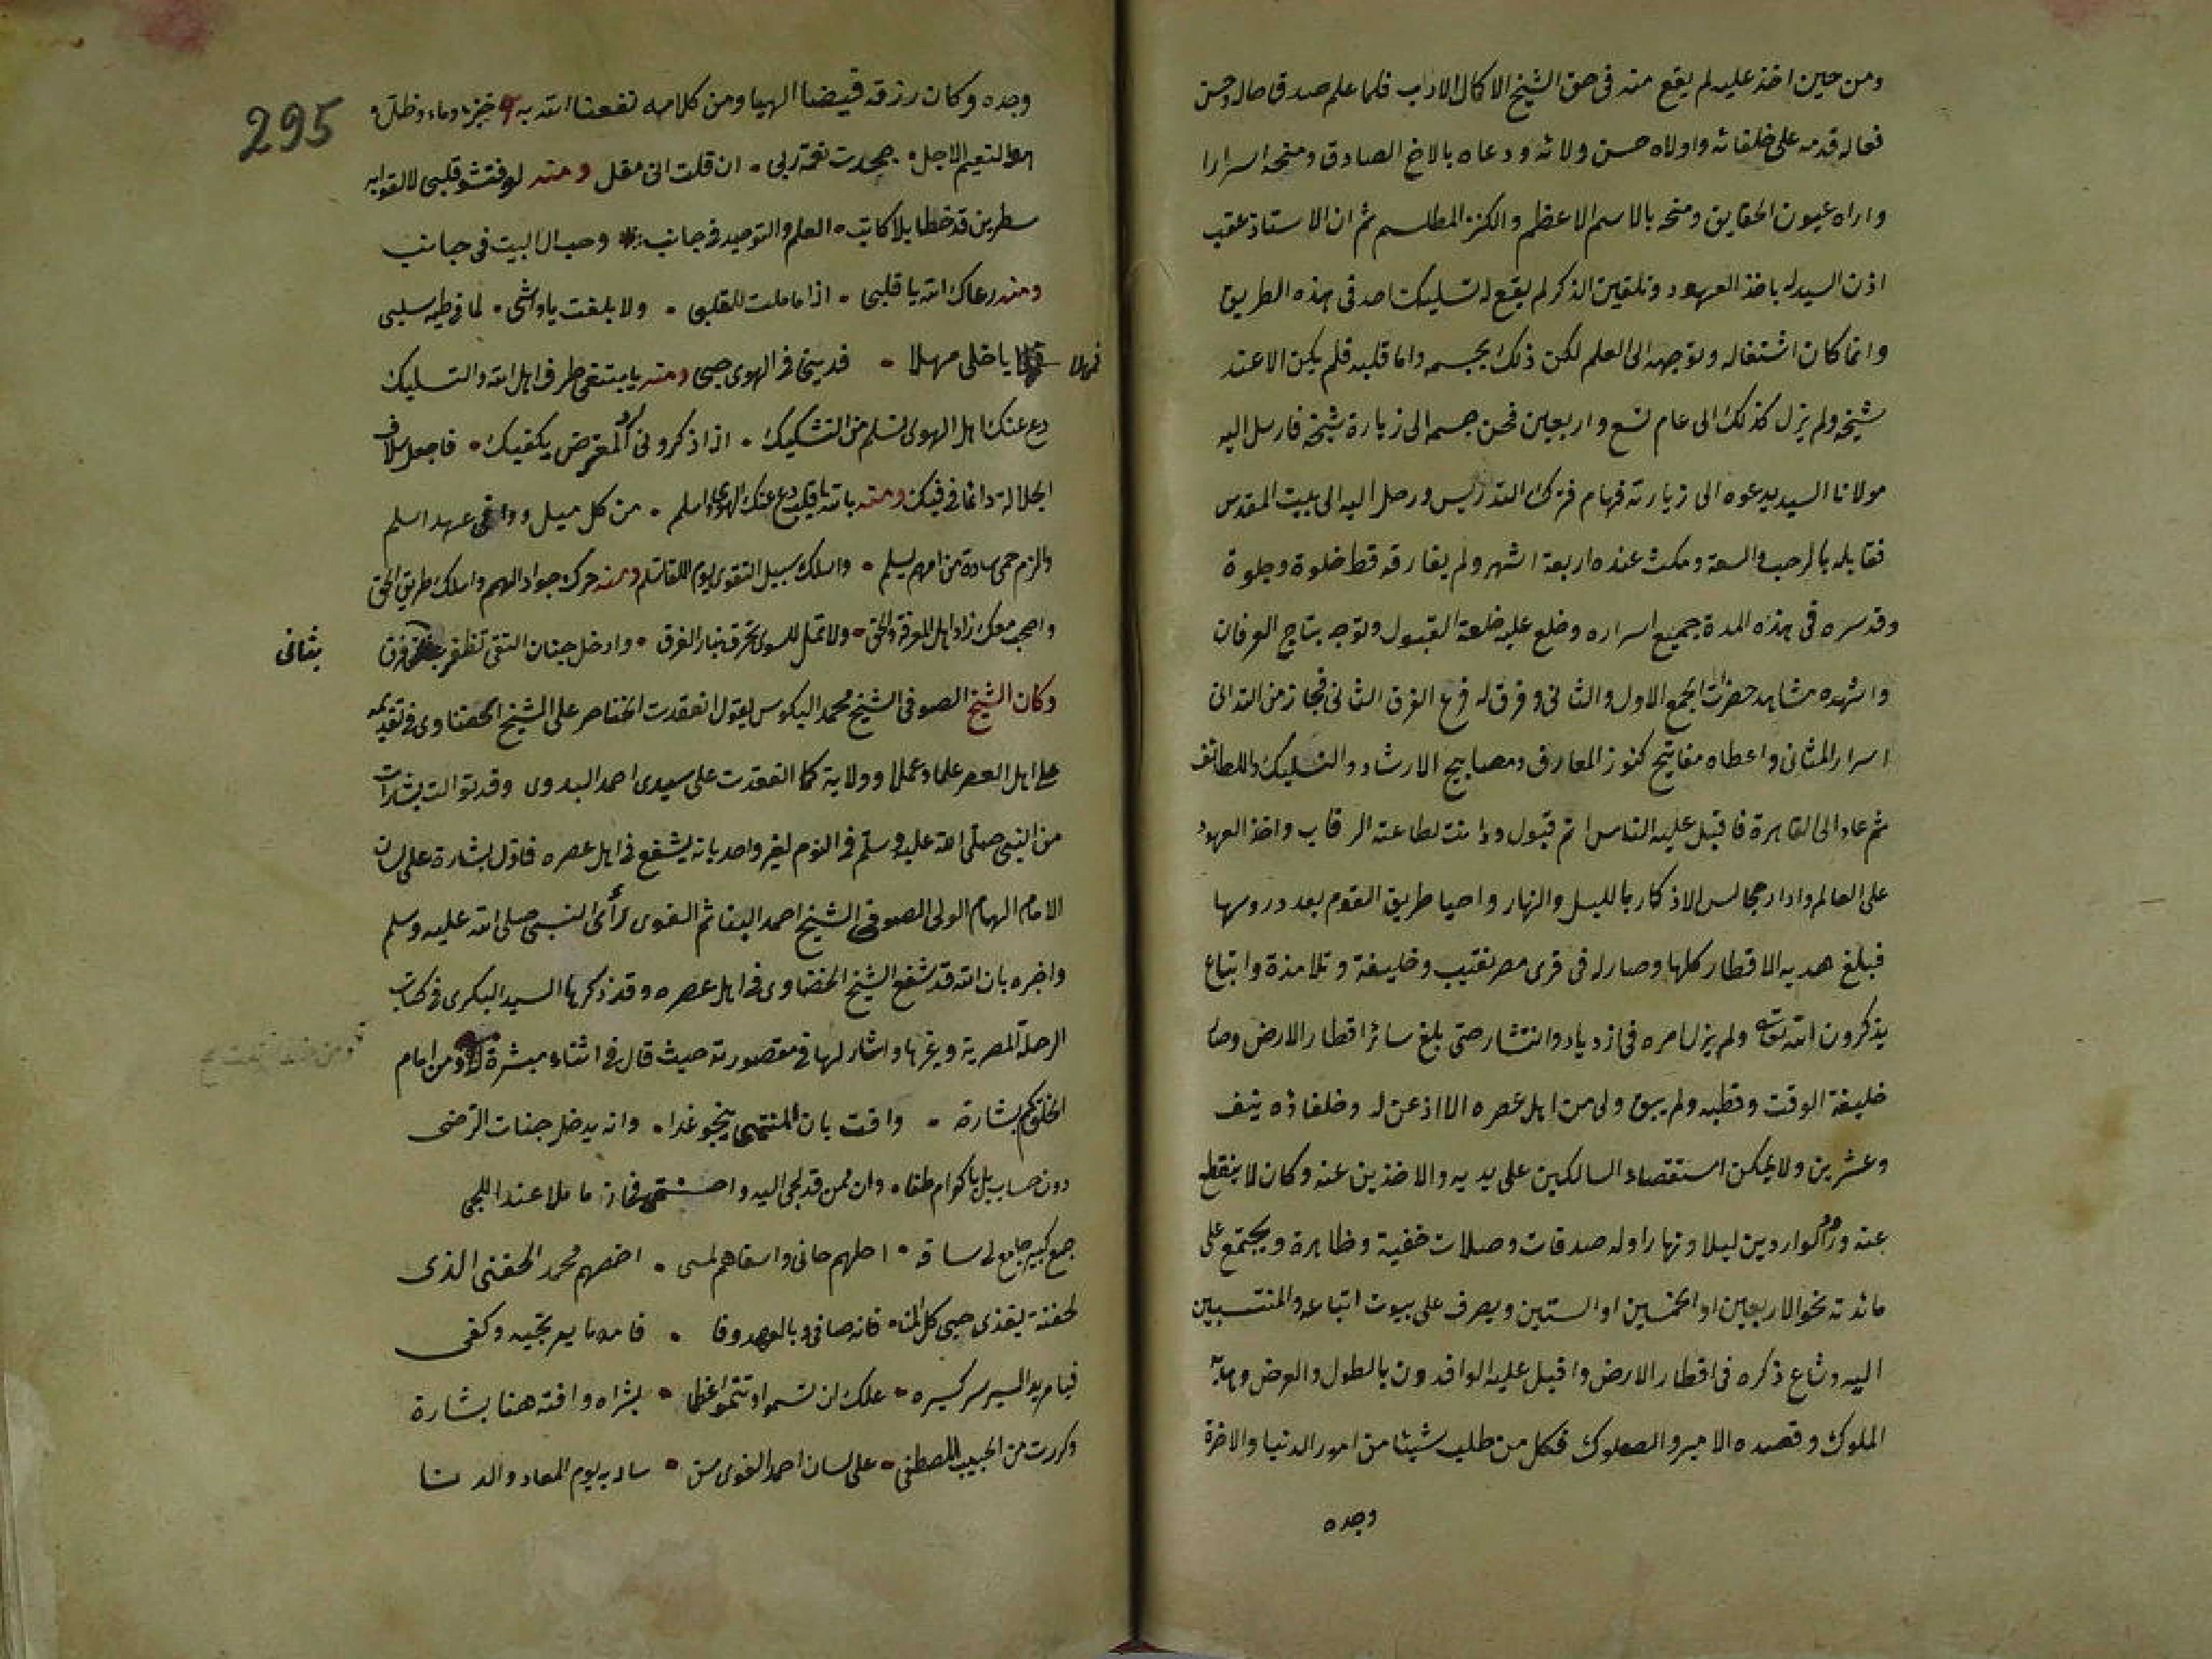 ومن حين اخذ عليه لم يقع منه فى حق الشيخ الا كمال الاداب فلما علم صدق حاله وحسن
فعاله قدمه على خلفائه واولاه حسن ولائه ودعاه بالاخ الصادق ومنحه اسرارا
واراه عيون الحقايق ومنحه بالاسم الاعظم والكنز المطلسم ثم ان الاستاذ عقب
اذن السيد له باخذ العهود وتلقين الذكر لم يقع له تسليك احد فى هذه الطريق
وانما كان اشتغاله وتوجهه الى العلم لكن ذلك بجسمه واما قلبه فلم يكن الا عند
شيخه ولم يزل كذلك الى عام تسع واربعين فحن جسمه الى زيارة شيخه فارسل اليه
مولانا السيد يدعوه الى زيارته فهام فترك التدريس ورحل اليه الى بيت المقدس
فقابله بالرحب والسعة ومكث عنده اربعة اشهر ولم يفارقه قط خلوة وجلوة
وقد سره فى هذه المدة جميع اسراره وخلع عليه خلعة القبول وتوجه بتاج العرفان
واشهده مشاهد حضرات الجمع الاول والثانى وفرق له فرع الفرق الثانى فحاز من التدانى
اسرار المثانى واعطاه مفاتيح كنوز المعارف ومصابيح الارشاد والتسليك واللطائف
ثم عاد الى القاهرة فاقبل عليه الناس اتم قبول ودانت لطاعته الرقاب واخذ العهود
على العالم وادار مجالس الاذكار بالليل والنهار واحيا طريق القوم بعد دروسها
فبلغ هديه الاقطار كلها وصار له فى قرى مصر نقيب وخليفة وتلامذة واتباع
يذكرون الله تعالى ولم يزل امره فى ازدياد وانتشار حتى بلغ سائر اقطار الارض وصار
خليفة الوقت وقطبه ولم يبق ولى من اهل عصره الا اذعن له وخلفاؤه ينف
وعشرين ولا يمكن استقصاء السالكين على يديه والاخذين عنه وكان لا ينقطع
عنه ورود الواردين ليلا ونهارا وله صدقات وصلات خفية وظاهرة ويجتمع على
مائدته نحو الاربعين او الخمسين او الستين ويصرف على بيوت اتباعه والمنتسبين
اليه وشاع ذكره فى اقطار الارض واقبل عليه الوافدون بالطول والعرض وهابه
الملوك وقصده الامير والصعلوك فكل من طلب شيئا من امور الدنيا والاخرة
وجده
295
وجده وكان رزقه فيضا الهيا ومن كلامه نفعنا الله به خبز وماء وظل
هو النعيم الاجل جحدت نعمة ربى ان قلت انى مقل ومنه لو فتشو قلبى لالقوا به
سطرين قد خطا بلا كاتب العلم والتوحيد فى جانب وحب ال البيت فى جانب
ومنه رعاك الله يا قلبى اذا ما ملت للقلبى ولا بلغت يا واشى لما فى طيه سلبى
فمهلا يا خلى مهلا فدينى فى الهوى حبى ومنه يا مبتغى طرف اهل الله والتسليك
دع عنك اهل الهوى تسلم من التشكيك ان اذكرونى لرد المعترض يكفيك فاجعل سلاف
الجلالة دائما فى فيك ومنه بالله يا قلبى دع عنك الهوى واسلم من كل ميل وواخى عهد اسلم
والزم حمى سادة من امهم يسلم واسلك سبيل التقوى ليوم اللقا تسلم ومنه حرك جواد الهمم واسلك طريق الحق
واصحب معك زاد اهل المعرفة والحق ولا تمل للسوى تحرق بنار الفرق وادخل جنان التقى تظفر فرق
بثانى
وكان الشيخ الصوفى الشيخ محمد البكوس يقول انعقدت الخناصر على الشيخ الحفناوى فى تقديمه
على اهل العصر علما وعملا وولاية كما انعقدت على سيدى احمد البدوى وقد توالت بشارات
من النبى صلى الله عليه وسلم فى النوم لغير واحد بانه يشفع فى اهل عصره فاول بشارة على لسان
الامام الهمام الولى الصوفى الشيخ احمد البنا ثم الفوى رأى النبى صلى الله عليه وسلم
واخبره بان الله قد شفع الشيخ الحفناوى فى اهل عصره وقد ذكرها السيد البكرى فى كتاب
الرحلة المصرية وغيرها واشار لها فى مقصورته حيث قال فى اثناء مبشرة له ومن امام
الخلق كم بشارة وافت بان المنتمى ينجو غدا وانه يدخل جنات الرضى
دون حساب بل باكوام طفا وان ممن قد لجى اليه واحتمى فحاز ما ملا عند اللجى
جمع كبير جامع له ساقه احلهم حانى واسقاهم لمى اخصهم محمد الحفنى الذى
لحفنه يغذى حبى كل المنا فانه صافى وبالعهد وفا
فيا مريد السير سر كسيره علك ان تسموا وتنموا عظما بشراه وافته هنا بشارة
وكررت من الحبيب المصطفى على لسان احمد الفوى من ساد به يوم المعاد والدنا